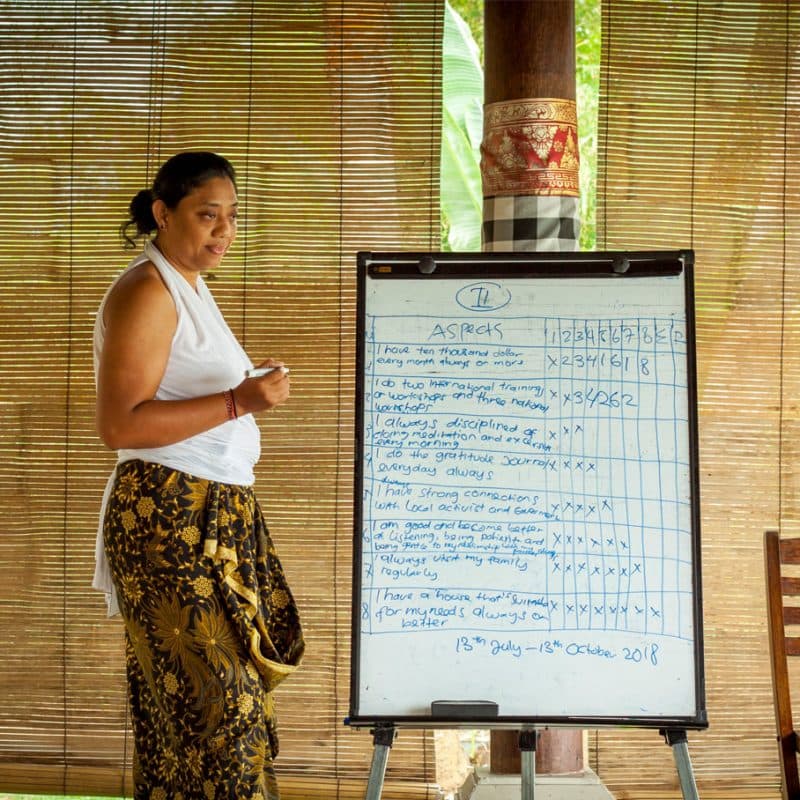 II
ASPECTS 1 2 3 4 5 6 7 8 Σ P
1 I have ten thousand dollar
every month always or more X 2 3 4 1 6 1 8
2 I do two international training
or workshops and three national X X 3 4 2 6 2
workshops
3 I always disciplined of
doing meditation and X X X
every morning
4 I do the gratitude Journal X X X X
everyday always
always
5 I have strong connections
with local activist and X X X X X
6 I am good and become better
of listening, being patient and X X X X X X
being gentle to my relationship with my
7 I always visit my family X X X X X X X
regularly
8 I have a house that's
for my needs always or X X X X X X X X
better
13th July - 13th October 2018